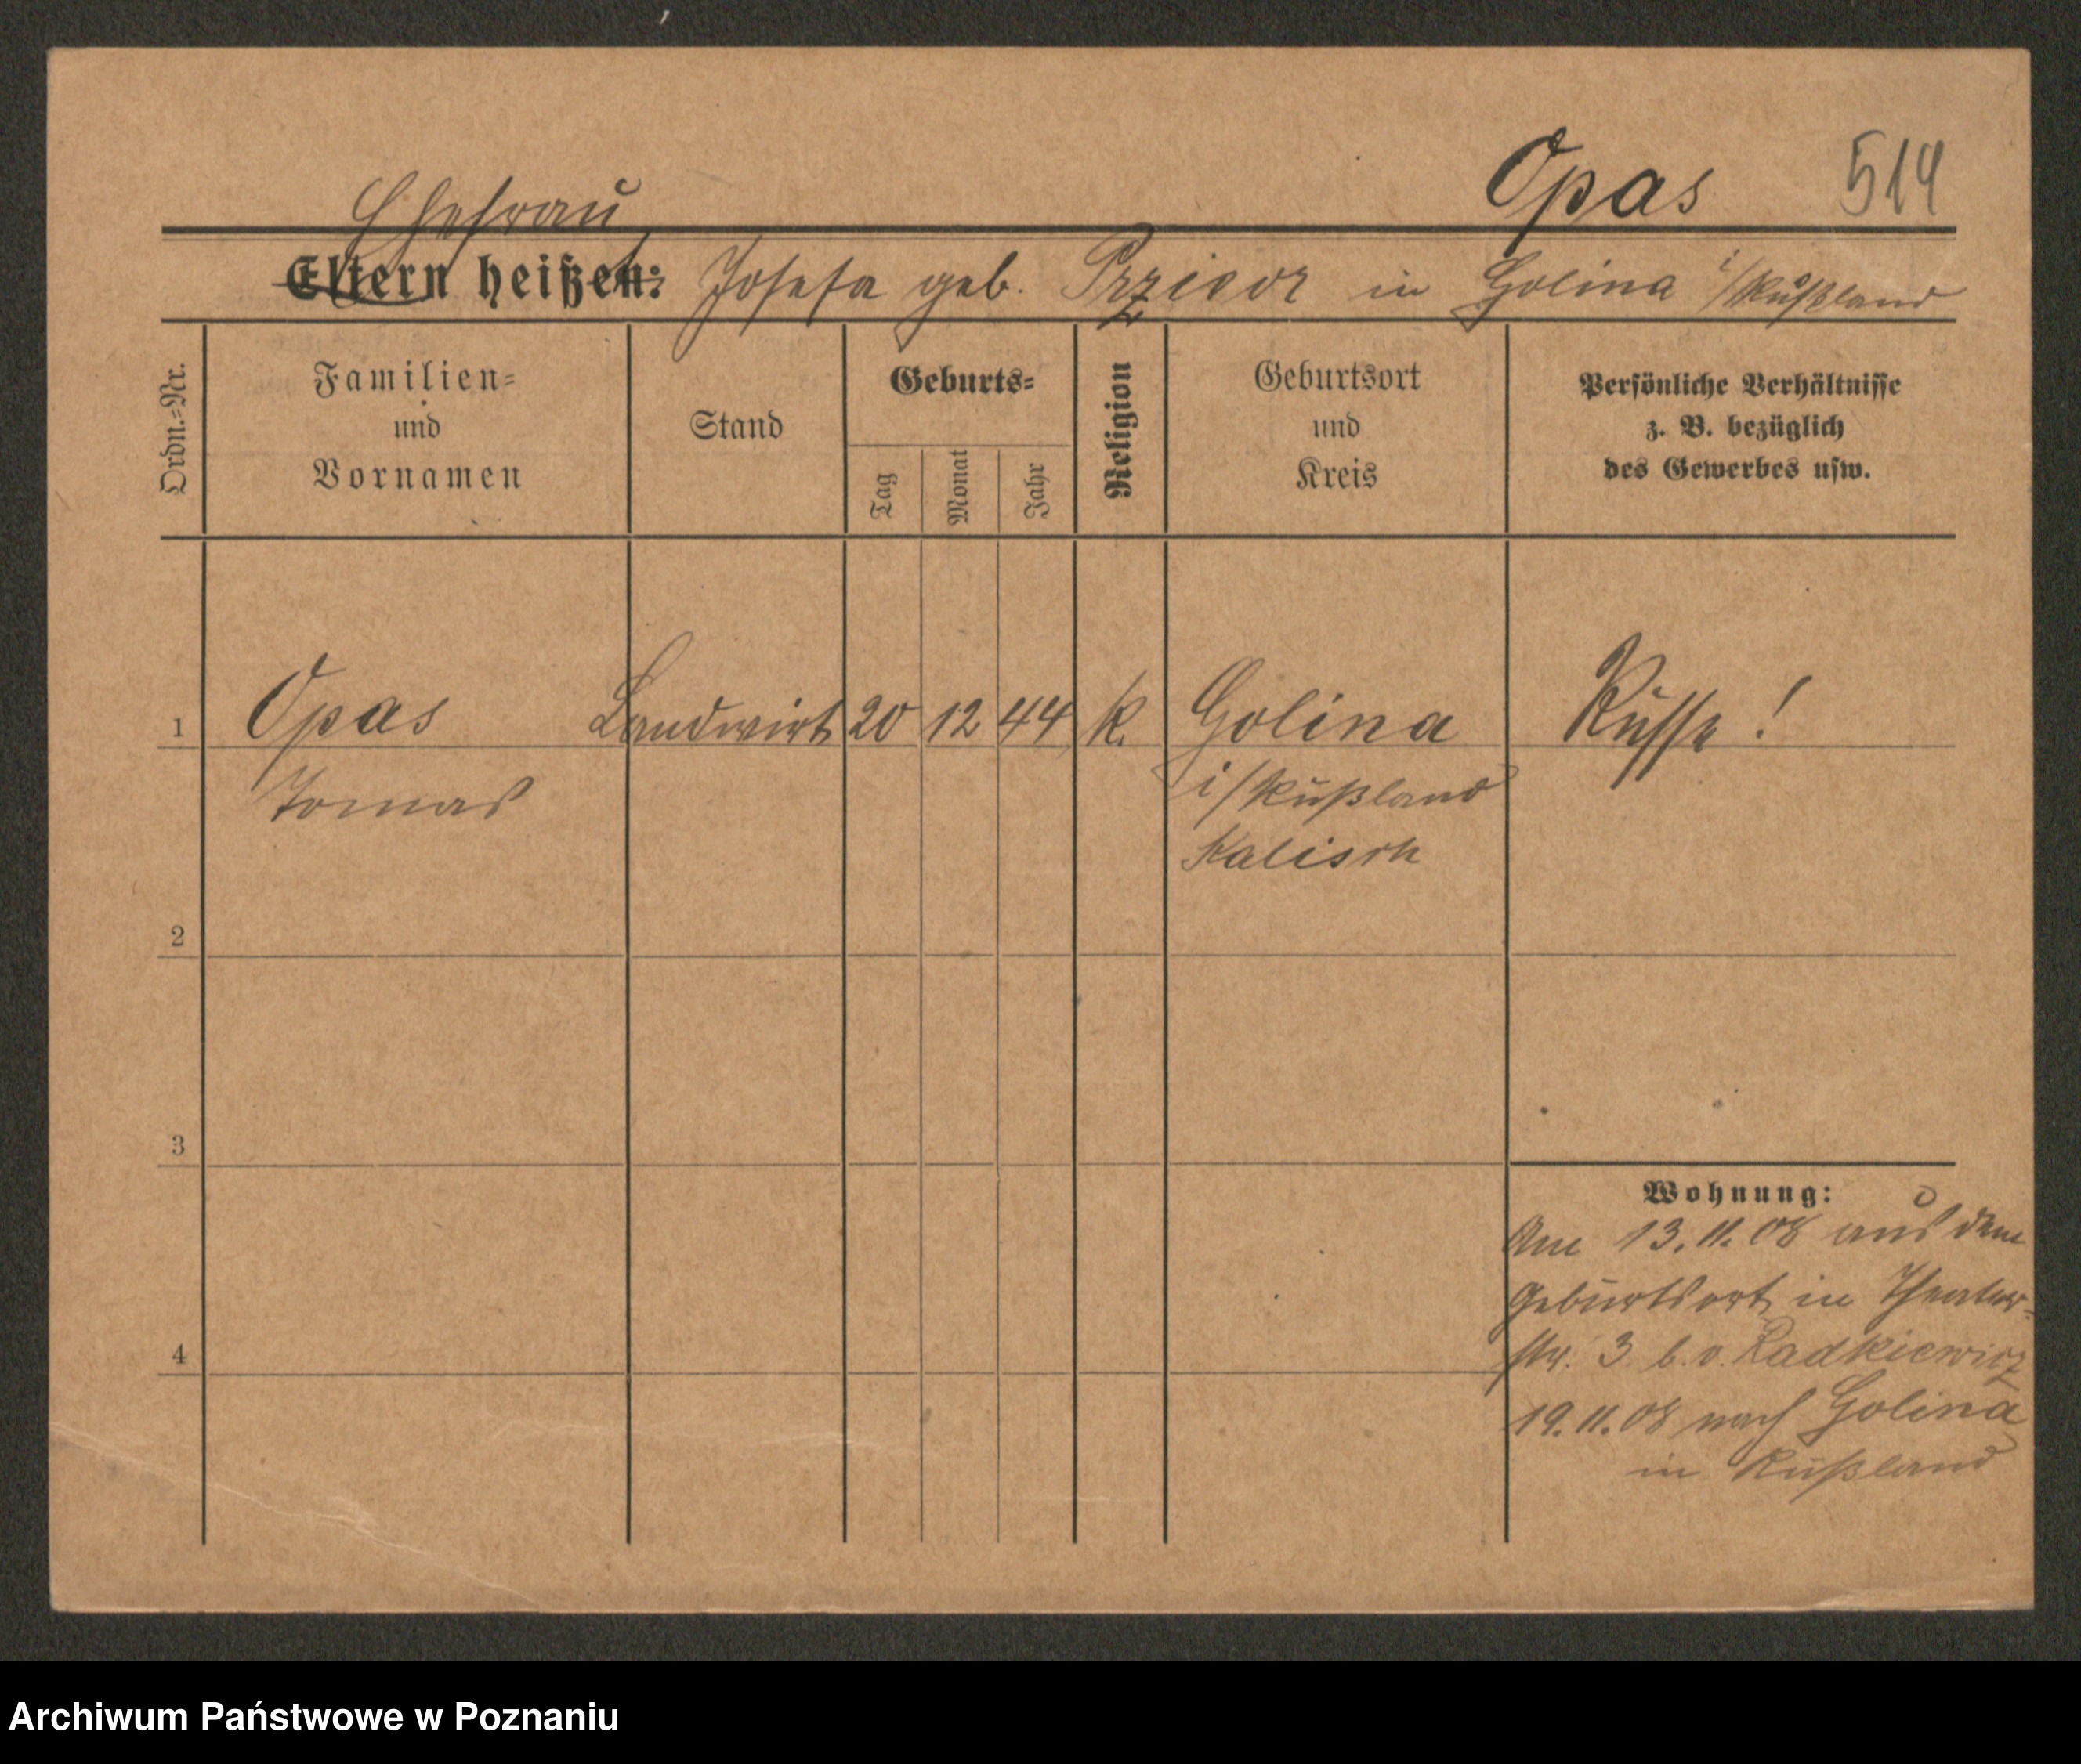 Opas 514
Ehefrau
Eltern heißen: Josefa geb. in Golina i/Rußland
Ordn.=Nr.
Familien=
und
Vornamen
Stand
Geburts=
Tag
Monat
Jahr
Religion
Geburtsort
und
Kreis
Persönliche Verhältnisse
z. B. bezüglich
des Gewerbes usw.
1 Opas Landwirt 20 12 44 k. Golina Russe!
Tomas i/Rußland
Kalisch
2
3
4
Wohnung:
Am 13.11.08 aus dem
Geburtsort in Theater=
str. 3 b. v. Radkiewicz
19.11.08 nach Golina
in Rußland
Archiwum Państwowe w Poznaniu